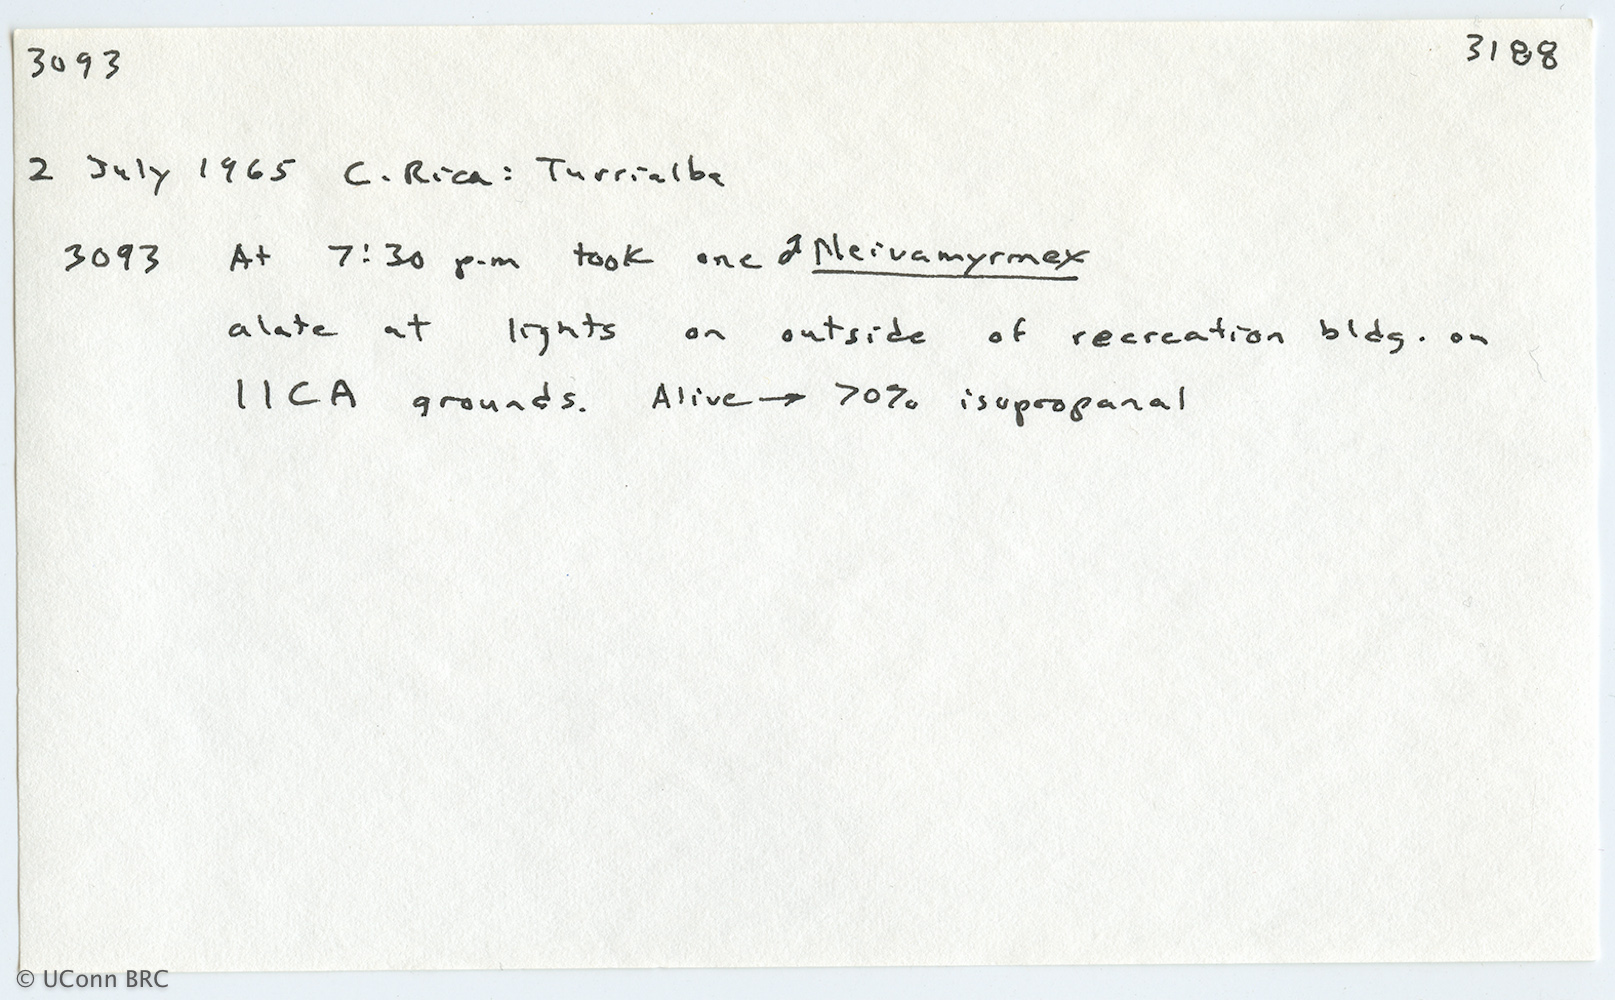 3093 3188
2 July 1965 C. Rica: Turrialba
3093 At 7:30 p.m took one ♂ Neivamyrmex
alate at lights on outside of recreation bldg. on
IICA grounds. Alive → 70% isopropanal
© UConn BRC